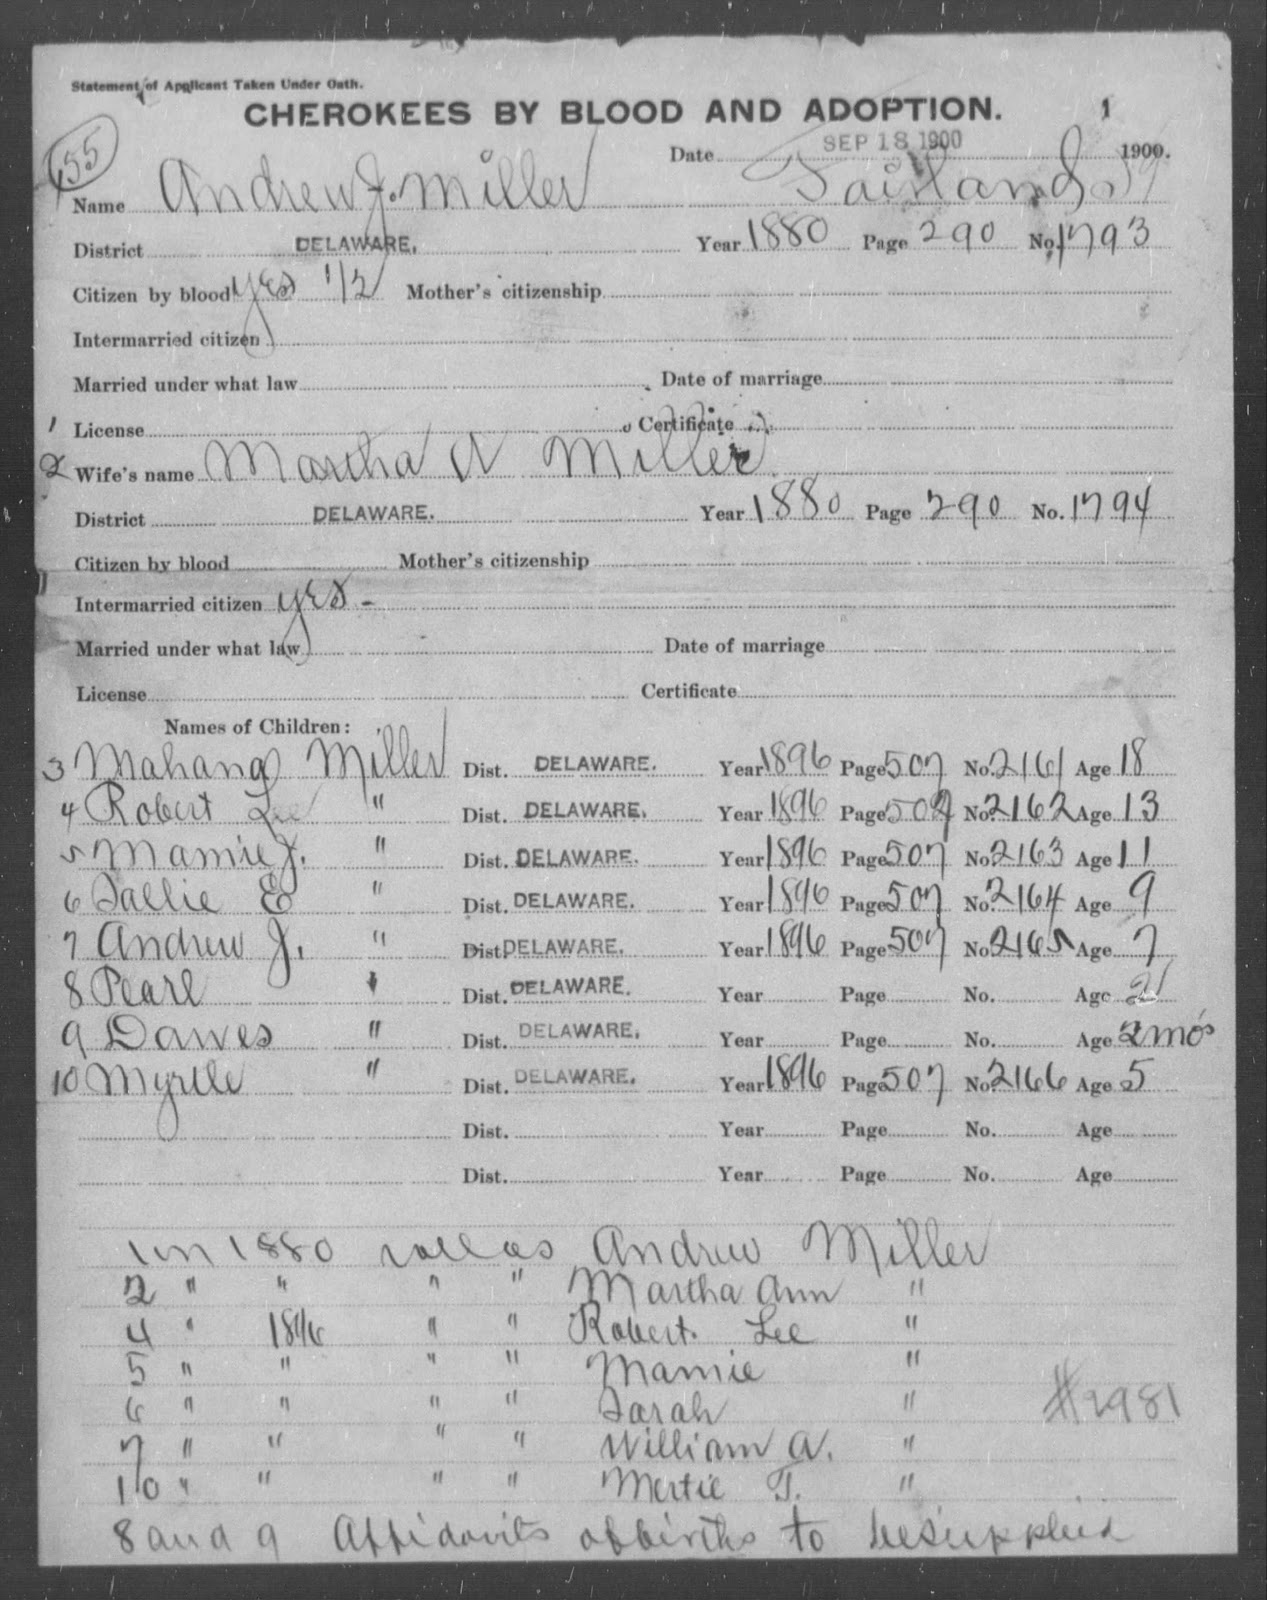 Statement of Applicant Taken Under Oath.
CHEROKEES BY BLOOD AND ADOPTION. 1
Date SEP 18 1900 1900.
155
Name Andrew J. Miller Fairland
District DELAWARE. Year 1880 Page 290 No. 1793
Citizen by blood yes 1/2 Mother's citizenship
Intermarried citizen
Married under what law Date of marriage
1 License Certificate
2 Wife's name Martha A Miller
District DELAWARE. Year 1880 Page 290 No. 1794
Citizen by blood Mother's citizenship
Intermarried citizen yes -
Married under what law Date of marriage
License Certificate
Names of Children:
3 Mahana Miller Dist. DELAWARE. Year 1896 Page 507 No. 2161 Age 18
4 Robert Lee " Dist. DELAWARE. Year 1896 Page 507 No. 2162 Age 13
5 Mamie J. " Dist. DELAWARE. Year 1896 Page 507 No. 2163 Age 11
6 Sallie E " Dist. DELAWARE. Year 1896 Page 507 No. 2164 Age 9
7 Andrew J. " Dist. DELAWARE. Year 1896 Page 507 No. 2165 Age 7
8 Pearl " Dist. DELAWARE. Year Page No. Age 2
9 Dawes " Dist. DELAWARE. Year Page No. Age 2 mos
10 Myrtle " Dist. DELAWARE. Year 1896 Page 507 No. 2166 Age 5
Dist. Year Page No. Age
Dist. Year Page No. Age
1 on 1880 roll as Andrew Miller
2 " " " " Martha Ann "
4 " 1896 " " Robert Lee "
5 " " " " Mamie "
6 " " " " Sarah " #2981
7 " " " " William A. "
10 " " " " Mertie T. "
8 and 9 Affidavits of births to be supplied